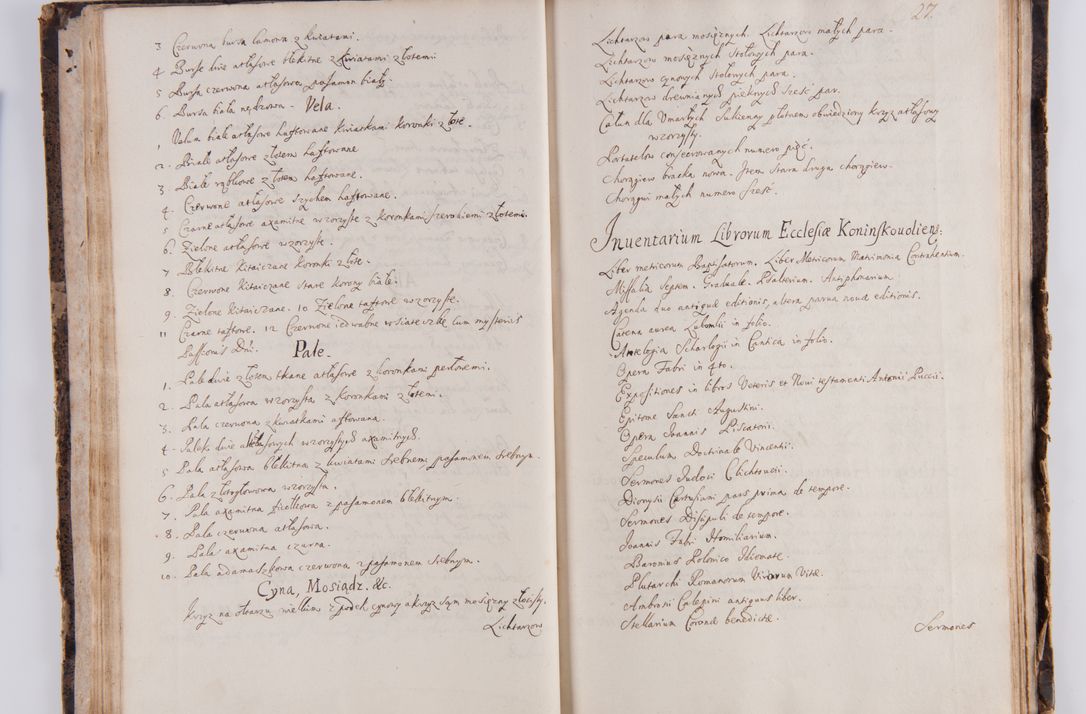 3 Czerwona bursa lamowa z kwiatami.
4 Bursy dwie atłasowe błękitne z kwiatami złotemi
5 Bursa czerwona atłasowa, pasaman biały.
6. Bursa biała nędzowa.
Vela.
1 Velum białe atłasowe haftowane kwiatkami koronki złote.
2. Białe atłasowe złotem haftowane
3. Białe rąbkowe złotem haftowane.
4. Czerwone atłasowe szychem haftowane.
5 Czarne atłasowe axamitne wzorzyste z koronkami szerokiemi złotemi.
6. Zielone atłasowe wzorzyste.
7 Błękitne kitaiczane koronki złote.
8. Czerwone kitaiczane stare korony białe.
9. Zielone kitaiczane. 10 Zielone taftowe wzorzyste.
11 Czarne taftowe. 12 Czerwone iedwabne w siateczkę cum mysteriis
Passionis Dni.
Pale.
1. Pale dwie złotem tkane atłasowe z koronkami perłowemi.
2. Pala atłasowa wzorzysta z koronkami złotemi.
3. Pala czerwona z kwiatkami aftowana.
4. Palek dwie atłasowych wzorzystych axamitnych.
5 Pala atłasowa błękitna z kwiatami srebnemi, pasamonem srebnym.
6. Pala złotogłowowa wzorzysta.
7. Pala axamitna fiołkowa z pasamonem błękitnym.
8. Pala czerwona atłasowa.
9. Pala axamitna czarna.
10. Pala adamaszkowa czerwona z pasamonem srebnym.
Cyna, Mosiądz. &c.
Krzyz na ołtarzu wielkim z podch cynowy a krzyz sam mosięzny złocisty.
Lichtarzow
27.
Lichtarzow para mosięznych. Lichtarzow małych para.
Lichtarzow mosięznych stołowych para.
Lichtarzow cynowych stołowych para.
Lichtarzow drewnianych pięknych sześć par.
Całun dla Vmarłych sukienny płutnem obwiedziony krzyz atłasowy
wzorzysty.
Portatelow consecrowanych numero pięć.
Chorągiew bracka nowa. Item stara druga chorągiew.
Chorągwi małych numero sześć.
Inuentarium Librorum Ecclesiæ Koninskouoliens.
Liber metricorum Baptisatorum. Liber Metricorum Matrimonia Contrahentium.
Missalia septem. Graduale. Psalterium. Antiphonarium.
Agenda duo antiquæ editionis, altera parua nouæ editionis.
Catena aurea Lubomlii in folio.
Antelogia Scharlogii in Cantica in folio.
Opera Fabri in 4to.
Expositiones in libros Veteris et Noui testamenti Antonii Puccii.
Epitome Sancti Augustini.
Opera Ioannis Piscatorii.
Speculum Doctrinale Vincentii.
Sermones Iudoci Clichtouei.
Dionysii Cartusiani pars prima de tempore.
Sermones Discipuli de tempore.
Ioannis Fabri Homiliarium.
Baronius Polonico Idiomate.
Plutarchi Romanorum Virorum Vitæ.
Ambrosii Calepini antiquus liber.
Stellarium Coronæ benedictæ.
Sermones